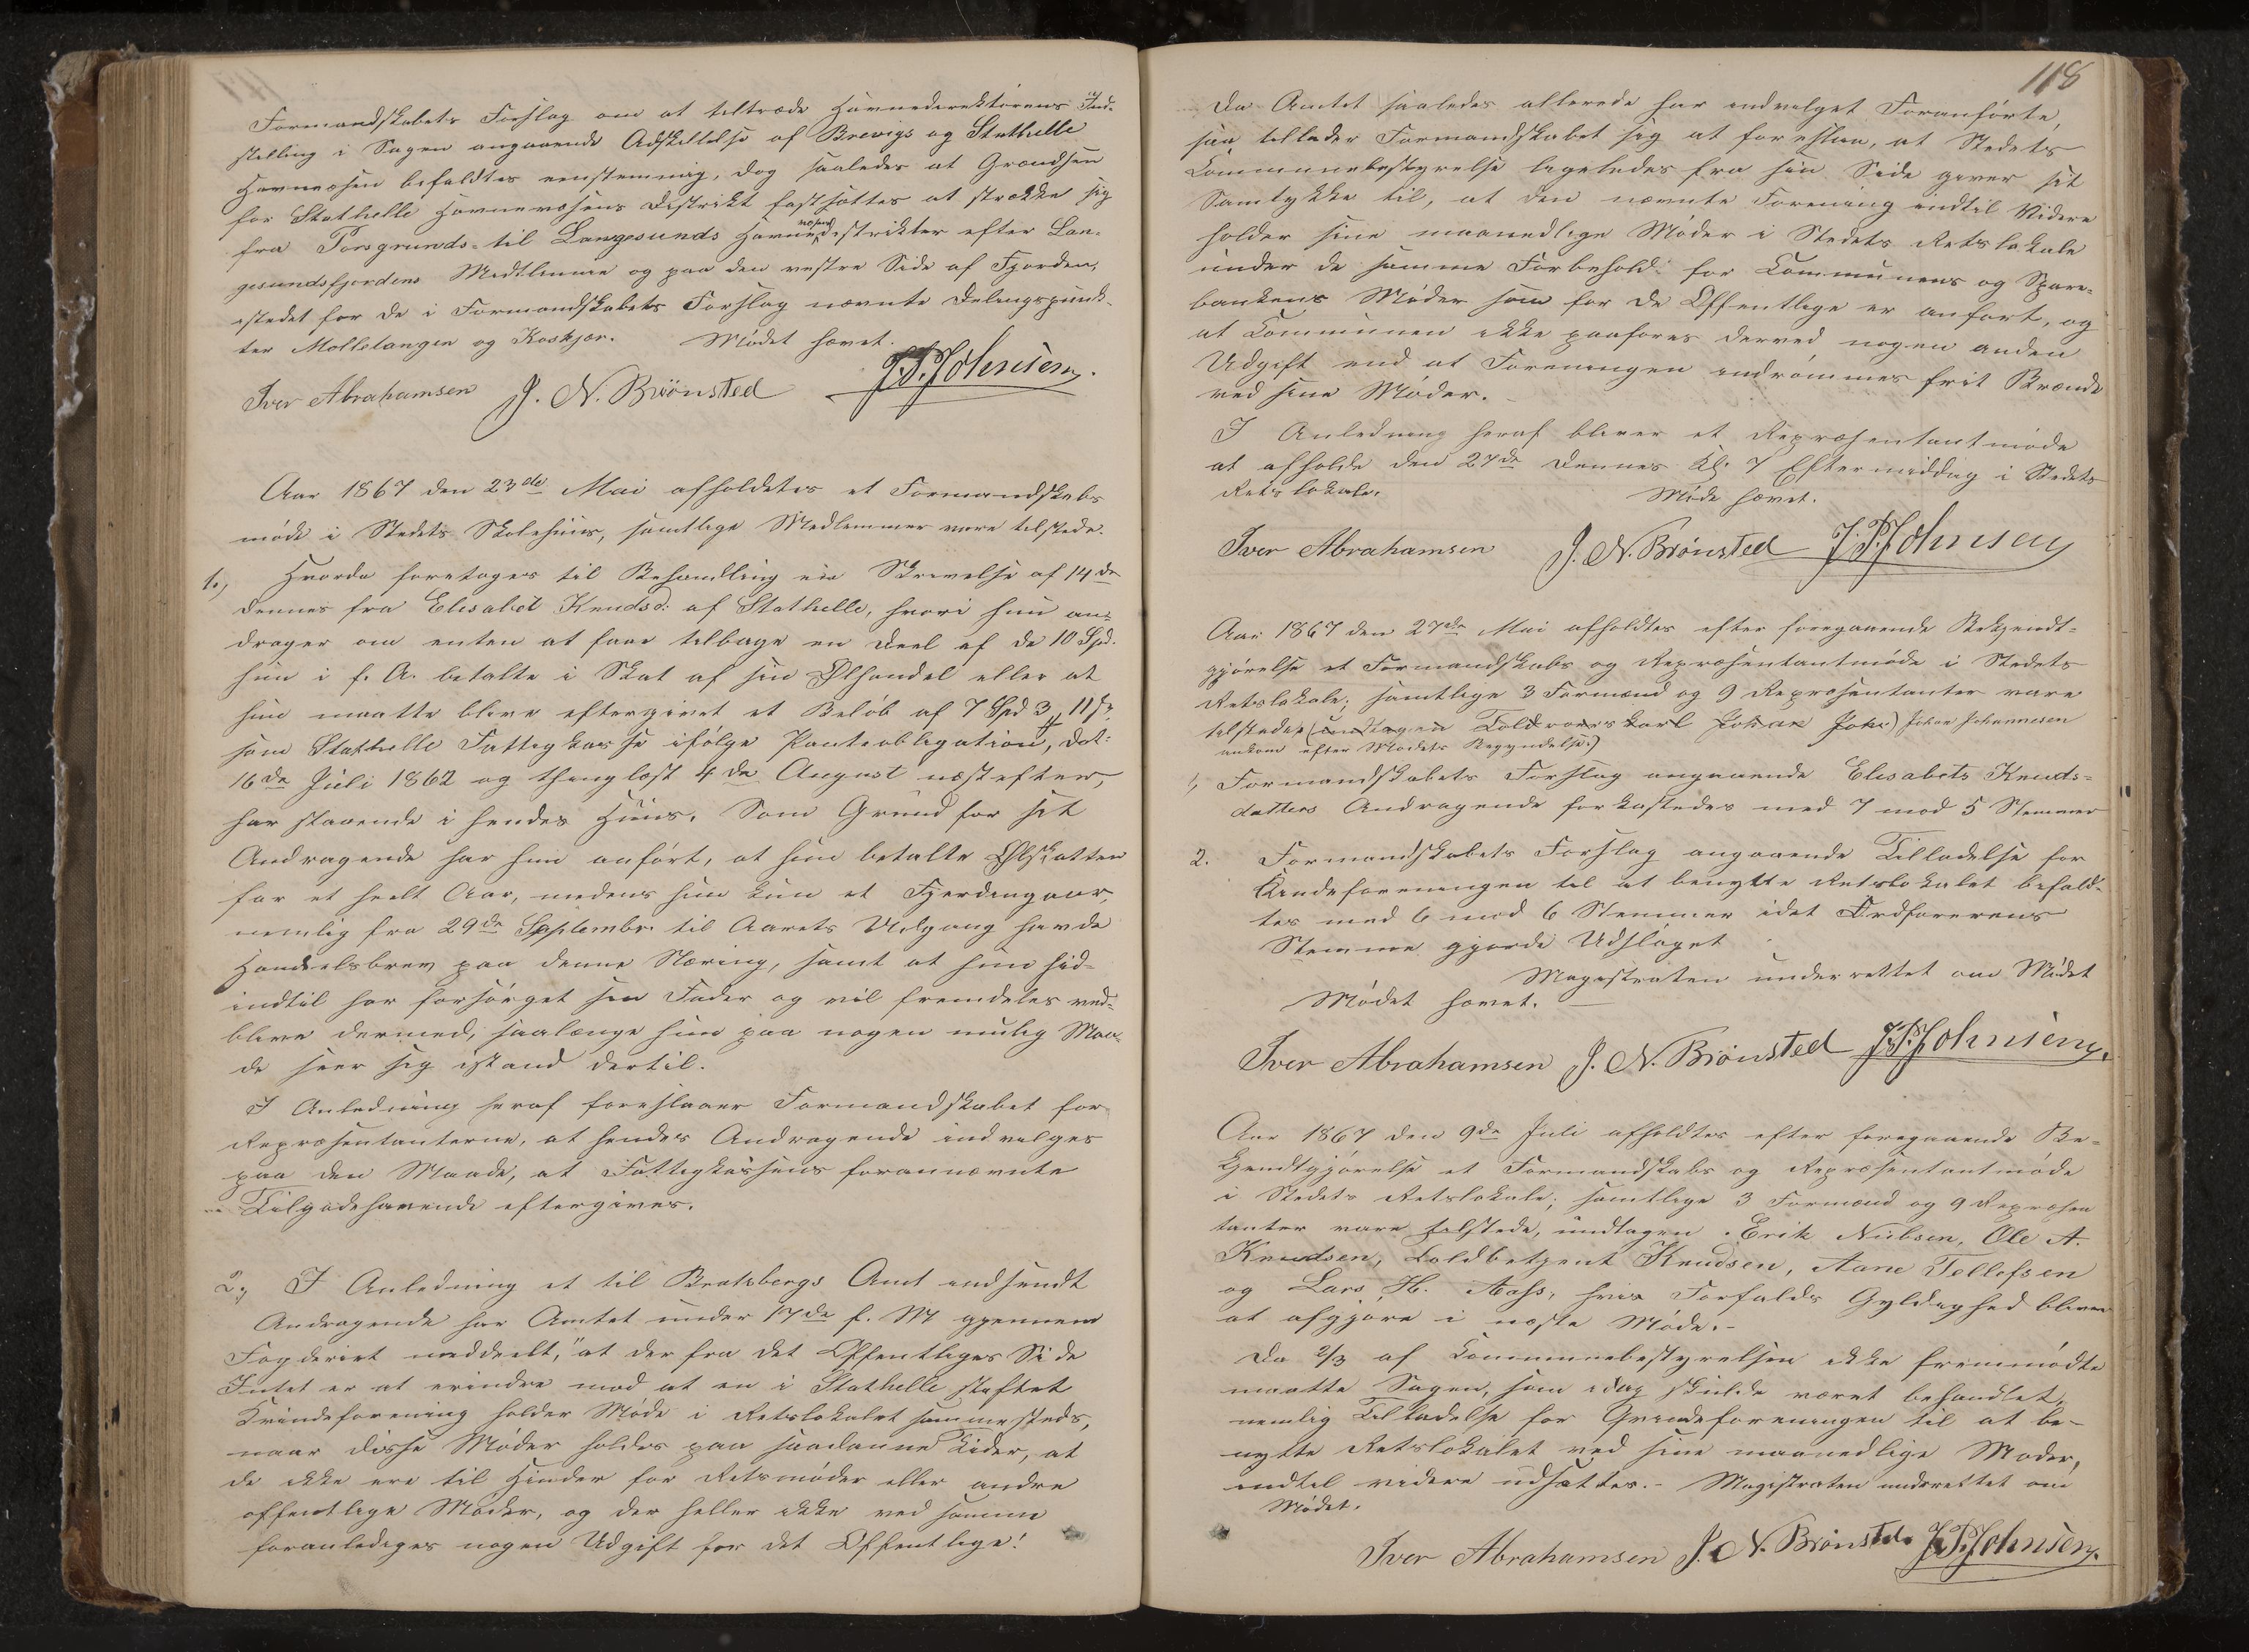 Formandskabets Forslag om at tiltræde Havnedirektörens Ind-
stilling i Sagen angaaende Adskillelse af Brevigs og Stathelle
Havnevæsen bifaldtes eenstemmig, dog saaledes at Grændsen
for Stathelle Havnevæsens Distrikt fastsættes at strække sig
fra Porsgrunds- til Langesunds Havnevæsensdistrikter efter Lan-
gesundsfjordens Midtlinie og paa den vestre Side af Fjorden,
istedet for de i Formandskabets Forslag nævnte Delingspunk-
ter Mölletangen og Koskjær. Mödet hævet.
Iver Abrahamsen J. N. Brönsted J. P. Johnsen.
Aar 1867 den 23de Mai afholdetes et Formandskabs
möde i Stedets Skolehuus, samtlige Medlemmer vare tilstede.
1., Hvorda foretoges til Behandling en Skrivelse af 14de
dennes fra Elisabet Knudsd: af Stathelle, hvori hun an-
drager om enten at faae tilbage en Deel af de 10 Spd.
hun i f. A. betalte i Skat af sin Ølhandel eller at
hun maatte blive eftergivet et Belöb af 7 Spd 3 11 s,
som Stathelle Fattigkasse ifölge Panteobligation, dat:
16de Juli 1862 og thinglæst 4de August næstefter,
har staaende i hendes Huus. Som Grund for sit
Andragende har hun anfört, at hun betalte Ølskatten
for et heelt Aar, medens hun kun et Fjerdingaar,
nemlig fra 29de Septembr. til Aarets Udgang havde
Handelsbrev paa denne Næring, samt at hun hid-
indtil har forsörget sin Fader og vil fremdeles ved-
blive dermed, saalænge hun paa nogen mulig Maa-
de seer sig istand dertil.
I Anledning heraf foreslaaer Formandskabet for
Repræsentanterne, at hendes Andragende indvilges
paa den Maade, at Fattigkassens forannævnte
Tilgodehavende eftergives.
2., I Anledning et til Bratsbergs Amt indsendt
Andragende har Amtet under 17de f. M gjennem
Fogderiet meddeelt, "at der fra det Offentliges Side
Intet er at erindre mod at en i Stathelle stiftet
Kvindeforening holder Möde i Retslokalet sammesteds,
naar disse Möder holdes paa saadanne Tider, at
de ikke ere til Hinder for Retsmöder eller andre
offentlige Möder, og der heller ikke ved samme
foranlediges nogen Udgift for det Offentlige!
118
Da Amtet saaledes allerede har indvilget Foranförte,
saa tillader Formandskabet sig at foreslaa, at Stedets
Communebestyrelse ligeledes fra sin Side giver sit
Samtykke til, at den nævnte Forening indtil Videre
holder sine maanedlige Möder i Stedets Retslokale
under de samme Forbehold for Communens og Spare-
bankens Möder som for de Offentlige er anfört, og
at Communen ikke paaföres derved nogen anden
Udgift end at Foreningen indrömmes frit Brænde
ved sine Möder.
I Anledning heraf bliver et Repræsentantmöde
at afholde den 27de dennes Kl: 7 Eftermiddag i Stedets
Retslokale. Möde hævet.
Iver Abrahamsen J. N. Brönsted J. P. Johnsen
Aar 1867 den 27de Mai afholdtes efter foregaaende Bekjendt-
gjörelse et Formandskabs og Repræsentantmöde i Stedets
Retslokale; samtlige 3 Formænd og 9 Repræsentanter vare
tilstede, (undtagen Toldroerskarl Johan Joha) Johan Johannesen
ankom efter Mödets Begyndelse.)
1, Formandskabets Forslag angaaende Elisabets Knuds-
datters Andragende forkastedes med 7 mod 5 Stemmer
2. Formandskabets Forslag angaaende Tilladelse for
Kvindeforeningen til at benytte Retslokalet bifald-
tes med 6 mod 6 Stemmer idet Ordförerens
Stemme gjorde Udslaget
Magistraten underrettet om Mödet
Mödet hævet.
Iver Abrahamsen J. N. Brönsted J. P. Johnsen.
Aar 1867 den 9de Juli afholdtes efter foregaaende Be-
kjendtgjörelse et Formandskabs og Repræsentantmöde
i Stedets Retslokale; samtlige 3 Formænd og 9 Repræsen
tanter vare tilstede, undtagen Erik Nielsen, Ole A.
Knudsen, Toldbetjent Knudsen, Aane Tellefsen
og Lars H. Aass, hvis Forfalds Gyldighed bliver
at afgjöre i næste Möde.-
Da 2/3 af Communebestyrelsen ikke fremmödte
maatte Sagen, som idag skulde været behandlet,
nemlig Tilladelse for Qvindeforeningen til at be-
nytte Retslokalet ved sine maanedlige Möder,
indtil videre udsættes.- Magistraten underrettet om
Mödet.
Iver Abrahamsen J. N. Brönsted. J. P. Johnsen.